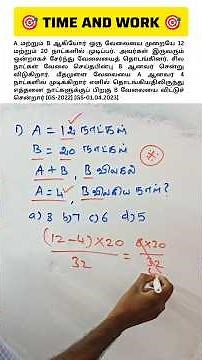 🎯 TIME AND WORK 🎯
A மற்றும் B ஆகியோர் ஒரு வேலையை முறையே 12
மற்றும் 20 நாட்களில் முடிப்பர். அவர்கள் இருவரும்
ஒன்றாகச் சேர்ந்து வேலையைத் தொடங்கினர். சில
நாட்கள் வேலை செய்தபின்பு B ஆனவர் சென்று
விடுகிறார். மீதமுள்ள வேலையை A ஆனவர் 4
நாட்களில் முடிக்கிறார் எனில் தொடங்கியதிலிருந்து
எத்தனை நாட்களுக்குப் பிறகு B வேலையை விட்டுச்
சென்றார் (GS-2022) (GS-01.04.2023)
1) A = 12 நாட்கள்
B = 20 நாட்கள்
A + B, B விலகல்
A = 4, B விலகிய நாள்?
a) 8 b) 7 c) 6 d) 5
(12-4)×20 / 32 = 8×20 / 32